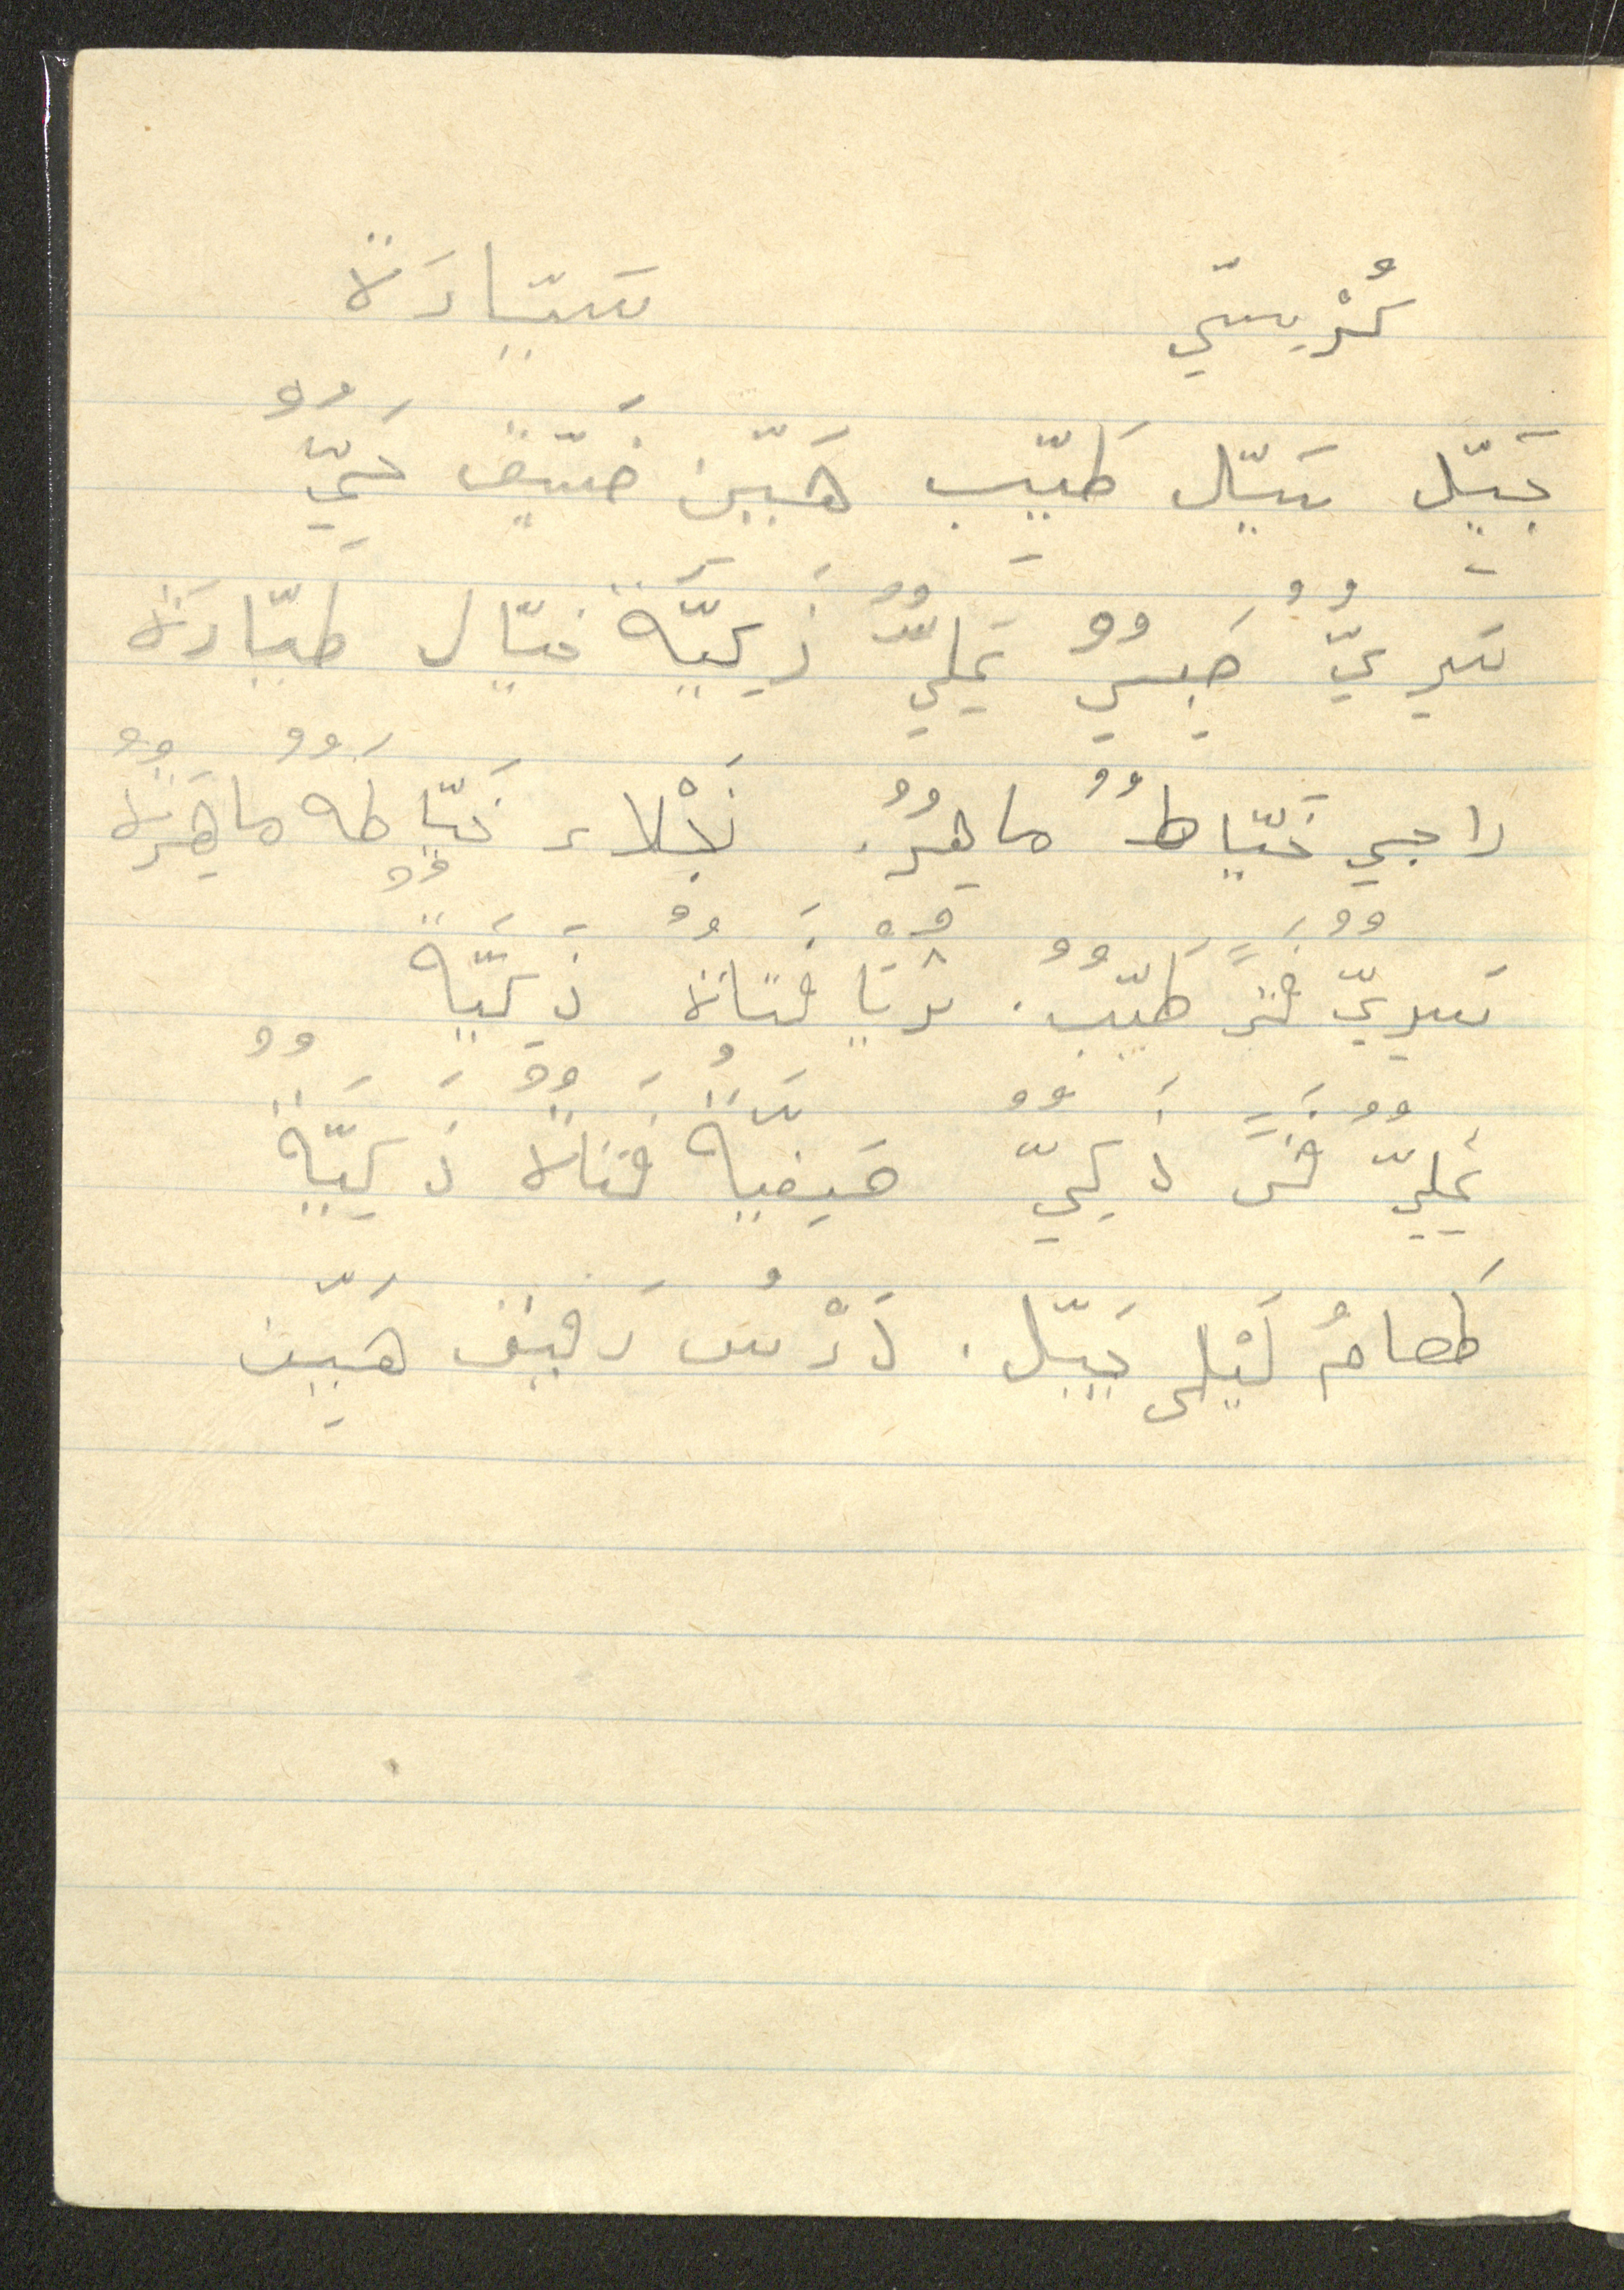 كُرْسِيّ سَيّارَة
جَيِّل سَيِّل طَيِّب هَيِّن ضَيِّق حَيّ
سَرِيّ صَبِيٌّ عَلِيٌّ ذَكِيَّة خَيّال طَيّارَة
راجي خَيّاطٌ ماهِرٌ. نَجْلاء خَيّاطَةٌ ماهِرَةٌ
سَرِيّ فَتًى طَيِّبٌ. ثُرَيّا فَتاةٌ ذَكِيَّةٌ
عَلِيّ فَتًى ذَكِيٌّ فَتاةٌ ذَكِيَّةٌ
طَعامُ لَيْلى جَيِّل. دَرْسُ رَفيق هَيِّن